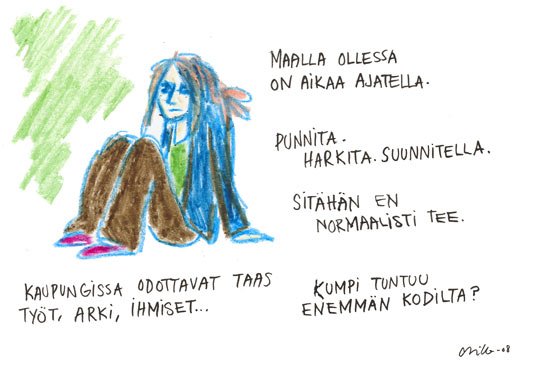 MAALLA OLLESSA
ON AIKAA AJATELLA.
PUNNITA.
HARKITA. SUUNNITELLA.
SITÄHÄN EN
NORMAALISTI TEE.
KAUPUNGISSA ODOTTAVAT TAAS
TYÖT, ARKI, IHMISET...
KUMPI TUNTUU
ENEMMÄN KODILTA?
-08